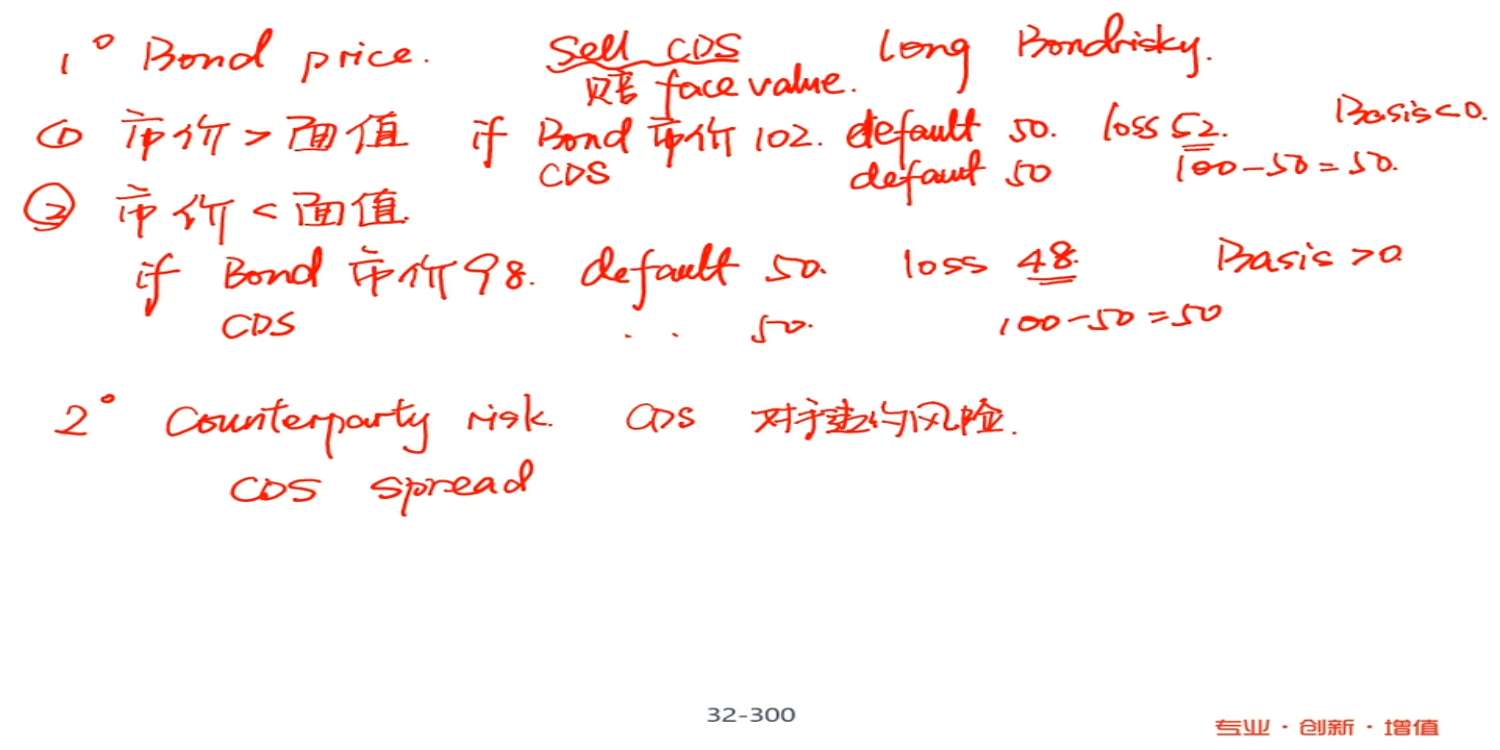 1° Bond price. Sell CDS long Bond risky.
赔 face value.
① 市价 > 面值 if Bond 市价 102. default 50. loss 52. Basis<0.
CDS defaut 50 100-50=50.
② 市价 < 面值.
if Bond 市价 98. default 50. loss 48. Basis >0
CDS .. 50. 100-50=50
2° Counterparty risk. CDS 对手违约风险.
CDS spread
32-300
专业·创新·增值